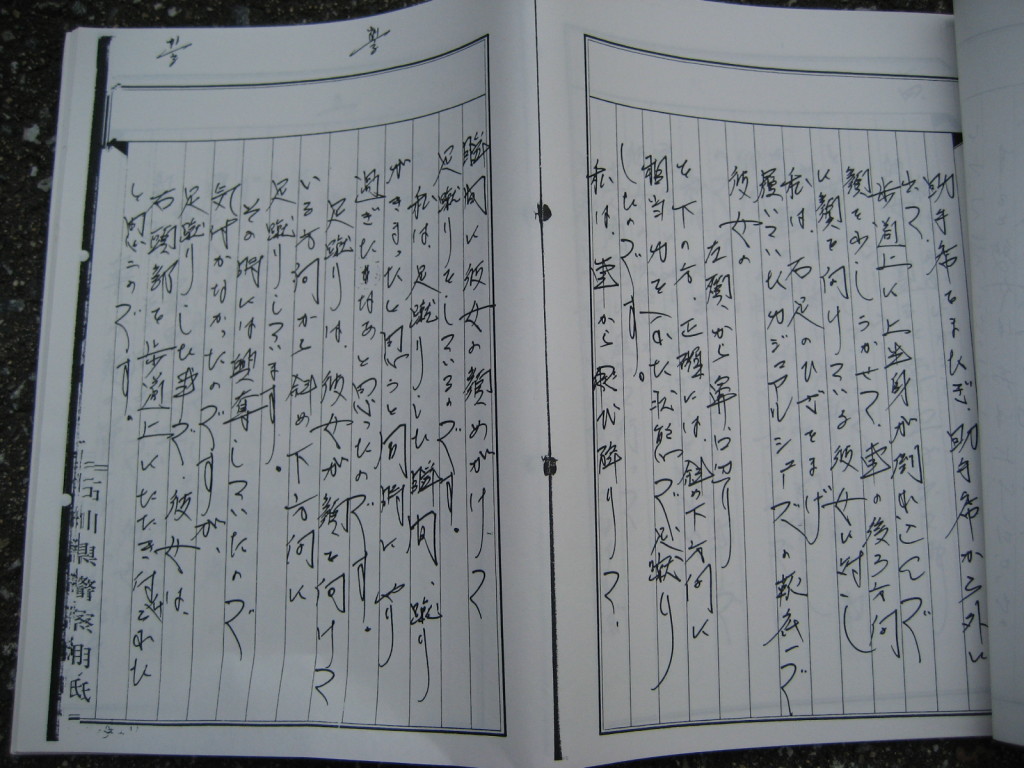 助手席をまたぎ、助手席から外に
出て、
歩道上に上半身が倒れこんで
顔を少しうかせて、車の後ろ方向
に顔を向けている彼女に対し
私は、右足のひざをまげ
履いていたカジュアルシューズの靴底で
彼女の
左頬から鼻、口辺り
を下の方、正確には、斜め下方向に
相当力を 状態で足蹴り
したのです。
私は、車から飛び降りて、
瞬間に彼女の顔めがけて
足蹴りをしているのです。
私は、足蹴りした瞬間、蹴り
がきまったと思うと同時に やり
過ぎたかなあと思ったのです。
足蹴りは、彼女が顔を向けて
いる方向から斜め下方向に
足蹴りしています。
その時には興奮していたので
気付かなかったのですが、
足蹴りした事で、彼女は、
右頭部を歩道上にたたき付けられた
と思うのです。
石川県警察